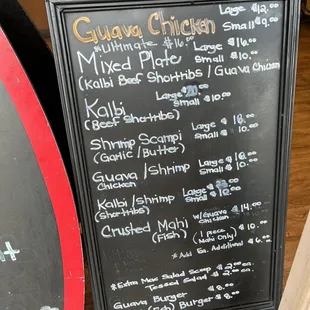 Guava Chicken Large $12.00
Small $9.00
*Ultimate $16.00 Large $16.00
Mixed Plate Small $10.00
(Kalbi Beef Shortribs / Guava Chicken
Kalbi Large
(Beef Shortribs) Small $10.00
Shrimp Scampi Large
(Garlic / Butter) Small $10.00
Guava / Shrimp Large $16.00
Chicken Small $10.00
Kalbi / Shrimp Large
(Shortribs) Small $10.00
Crusted Mahi w/Guava $14.00
(Fish) Chicken
1 piece $10.00
(Mahi Only)
* Add Ea. Additional $6.00
*Extra Mac Salad Scoop $2.00 ea.
Tossed Salad $2.00 ea.
Guava Burger $8.00
(Fish) Burger $8.00